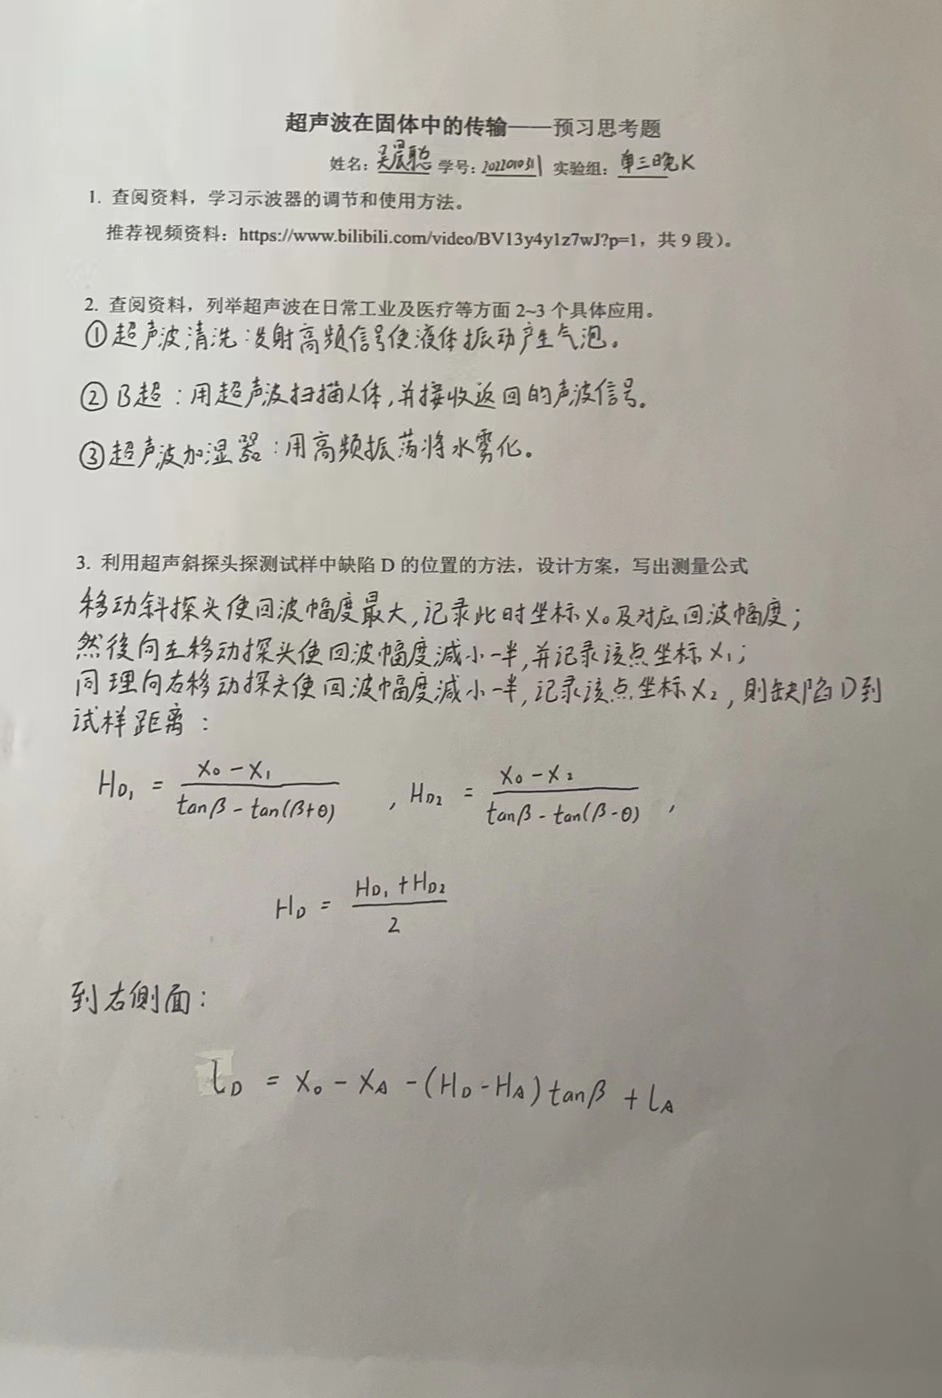 超声波在固体中的传输——预习思考题
姓名：吴晨聪 学号：2022010311 实验组：单三晚K
1. 查阅资料，学习示波器的调节和使用方法。
推荐视频资料：https://www.bilibili.com/video/BV13y4y1z7wJ?p=1，共 9 段）。
2. 查阅资料，列举超声波在日常工业及医疗等方面 2~3 个具体应用。
①超声波清洗：发射高频信号使液体振动产生气泡。
②B超：用超声波扫描人体，并接收返回的声波信号。
③超声波加湿器：用高频振荡将水雾化。
3. 利用超声斜探头探测试样中缺陷 D 的位置的方法，设计方案，写出测量公式
移动斜探头使回波幅度最大，记录此时坐标X₀及对应回波幅度；
然後向左移动探头使回波幅度减小一半，并记录该点坐标X₁；
同理向右移动探头使回波幅度减小一半，记录该点坐标X₂，則缺陷D到
试样距离：
H_{D1} = \frac{X₀-X₁}{tanβ-tan(β+θ)} , H_{D2} = \frac{X₀-X₂}{tanβ-tan(β-θ)} ,
H_D = \frac{H_{D1}+H_{D2}}{2}
到右側面：
L_D = X₀-X_A-(H_D-H_A)tanβ+L_A